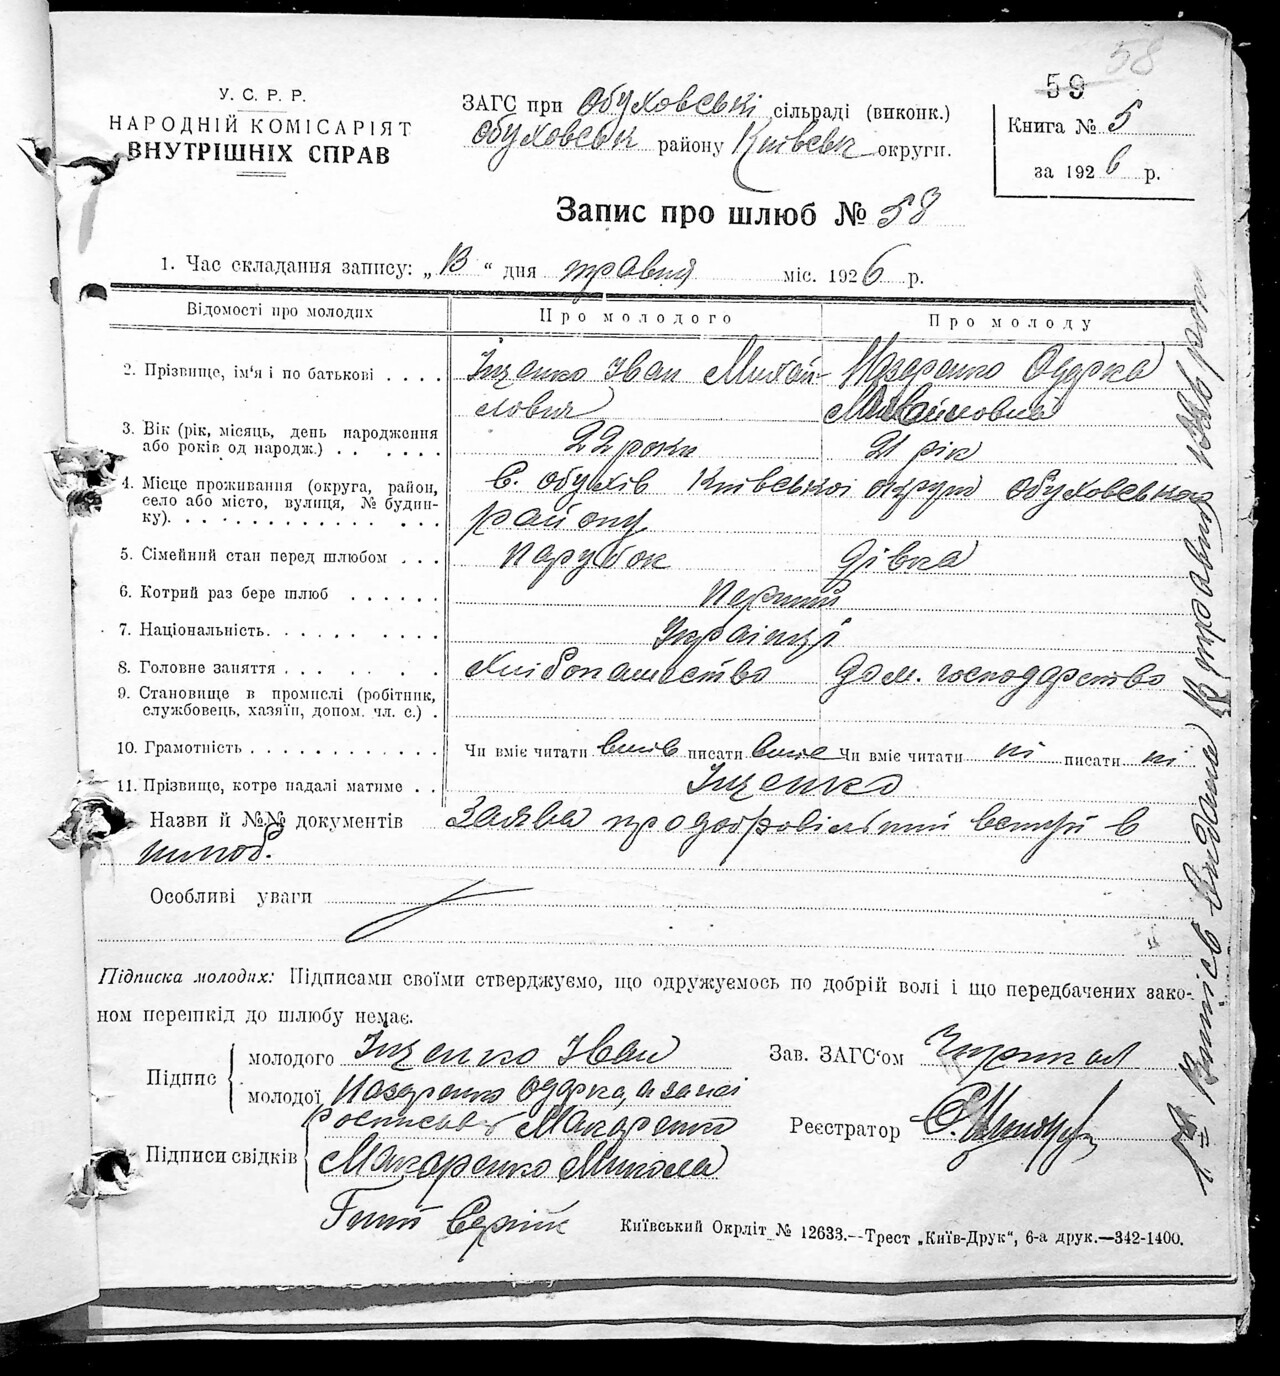 58
59
У. С. Р. Р.
НАРОДНІЙ КОМІСАРІЯТ
ВНУТРІШНІХ СПРАВ
ЗАГС при Обуховські сільраді (виконк.)
Обуховськ району Київськ округи.
Книга № 5
за 1926 р.
Запис про шлюб № 58
1. Час складання запису: „13“ дня травня міс. 1926 р.
Відомості про молодих Про молодого Про молоду
2. Прізвище, ім'я і по батькові . . . . Іщенко Іван Михай- Назаренко Одарка
лович Михайловна
3. Вік (рік, місяць, день народження
або років од народж.) . . . . . . 22 роки 21 рік
4. Місце проживання (округа, район,
село або місто, вулиця, № будин-
ку). . . . . . . . . . . . . . . . с. Обухів Київської округи Обуховського
району
5. Сімейний стан перед шлюбом . . . парубок дівка
6. Котрий раз бере шлюб . . . . . . перший
7. Національність. . . . . . . . . . Українці
8. Головне заняття . . . . . . . . . Хлібопашество Дом. господарство
9. Становище в промислі (робітник,
службовець, хазяїн, допом. чл. с.) .
10. Грамотність . . . . . . . . . . . Чи вміє читати вміє писати вміє Чи вміє читати ні писати ні
11. Прізвище, котре надалі матиме . . Іщенко
Назви й №№ документів Заява про добровільний вступ в
шлюб.
Особливі уваги
Підписка молодих: Підписами своїми стверджуємо, що одружуємось по добрій волі і що передбачених зако-
ном перешкід до шлюбу немає.
Підпис молодого Іщенко Іван
молодої Назаренко Одарка, а за неї
росписався Макаренко
Підписи свідків Макаренко Микола
Гиий Сергій
Зав. ЗАГС'ом
Реєстратор
Київський Окрліт № 12633.—Трест „Київ-Друк“, 6-а друк.—342-1400.
Випись видана 13 травня 1926 року